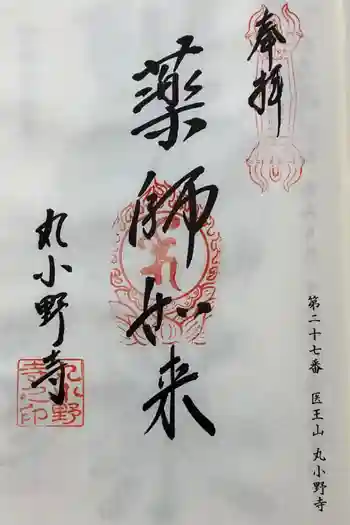 奉拝
第二十七番 医王山 丸小野寺
薬師如来
丸小野寺
丸小野寺之印